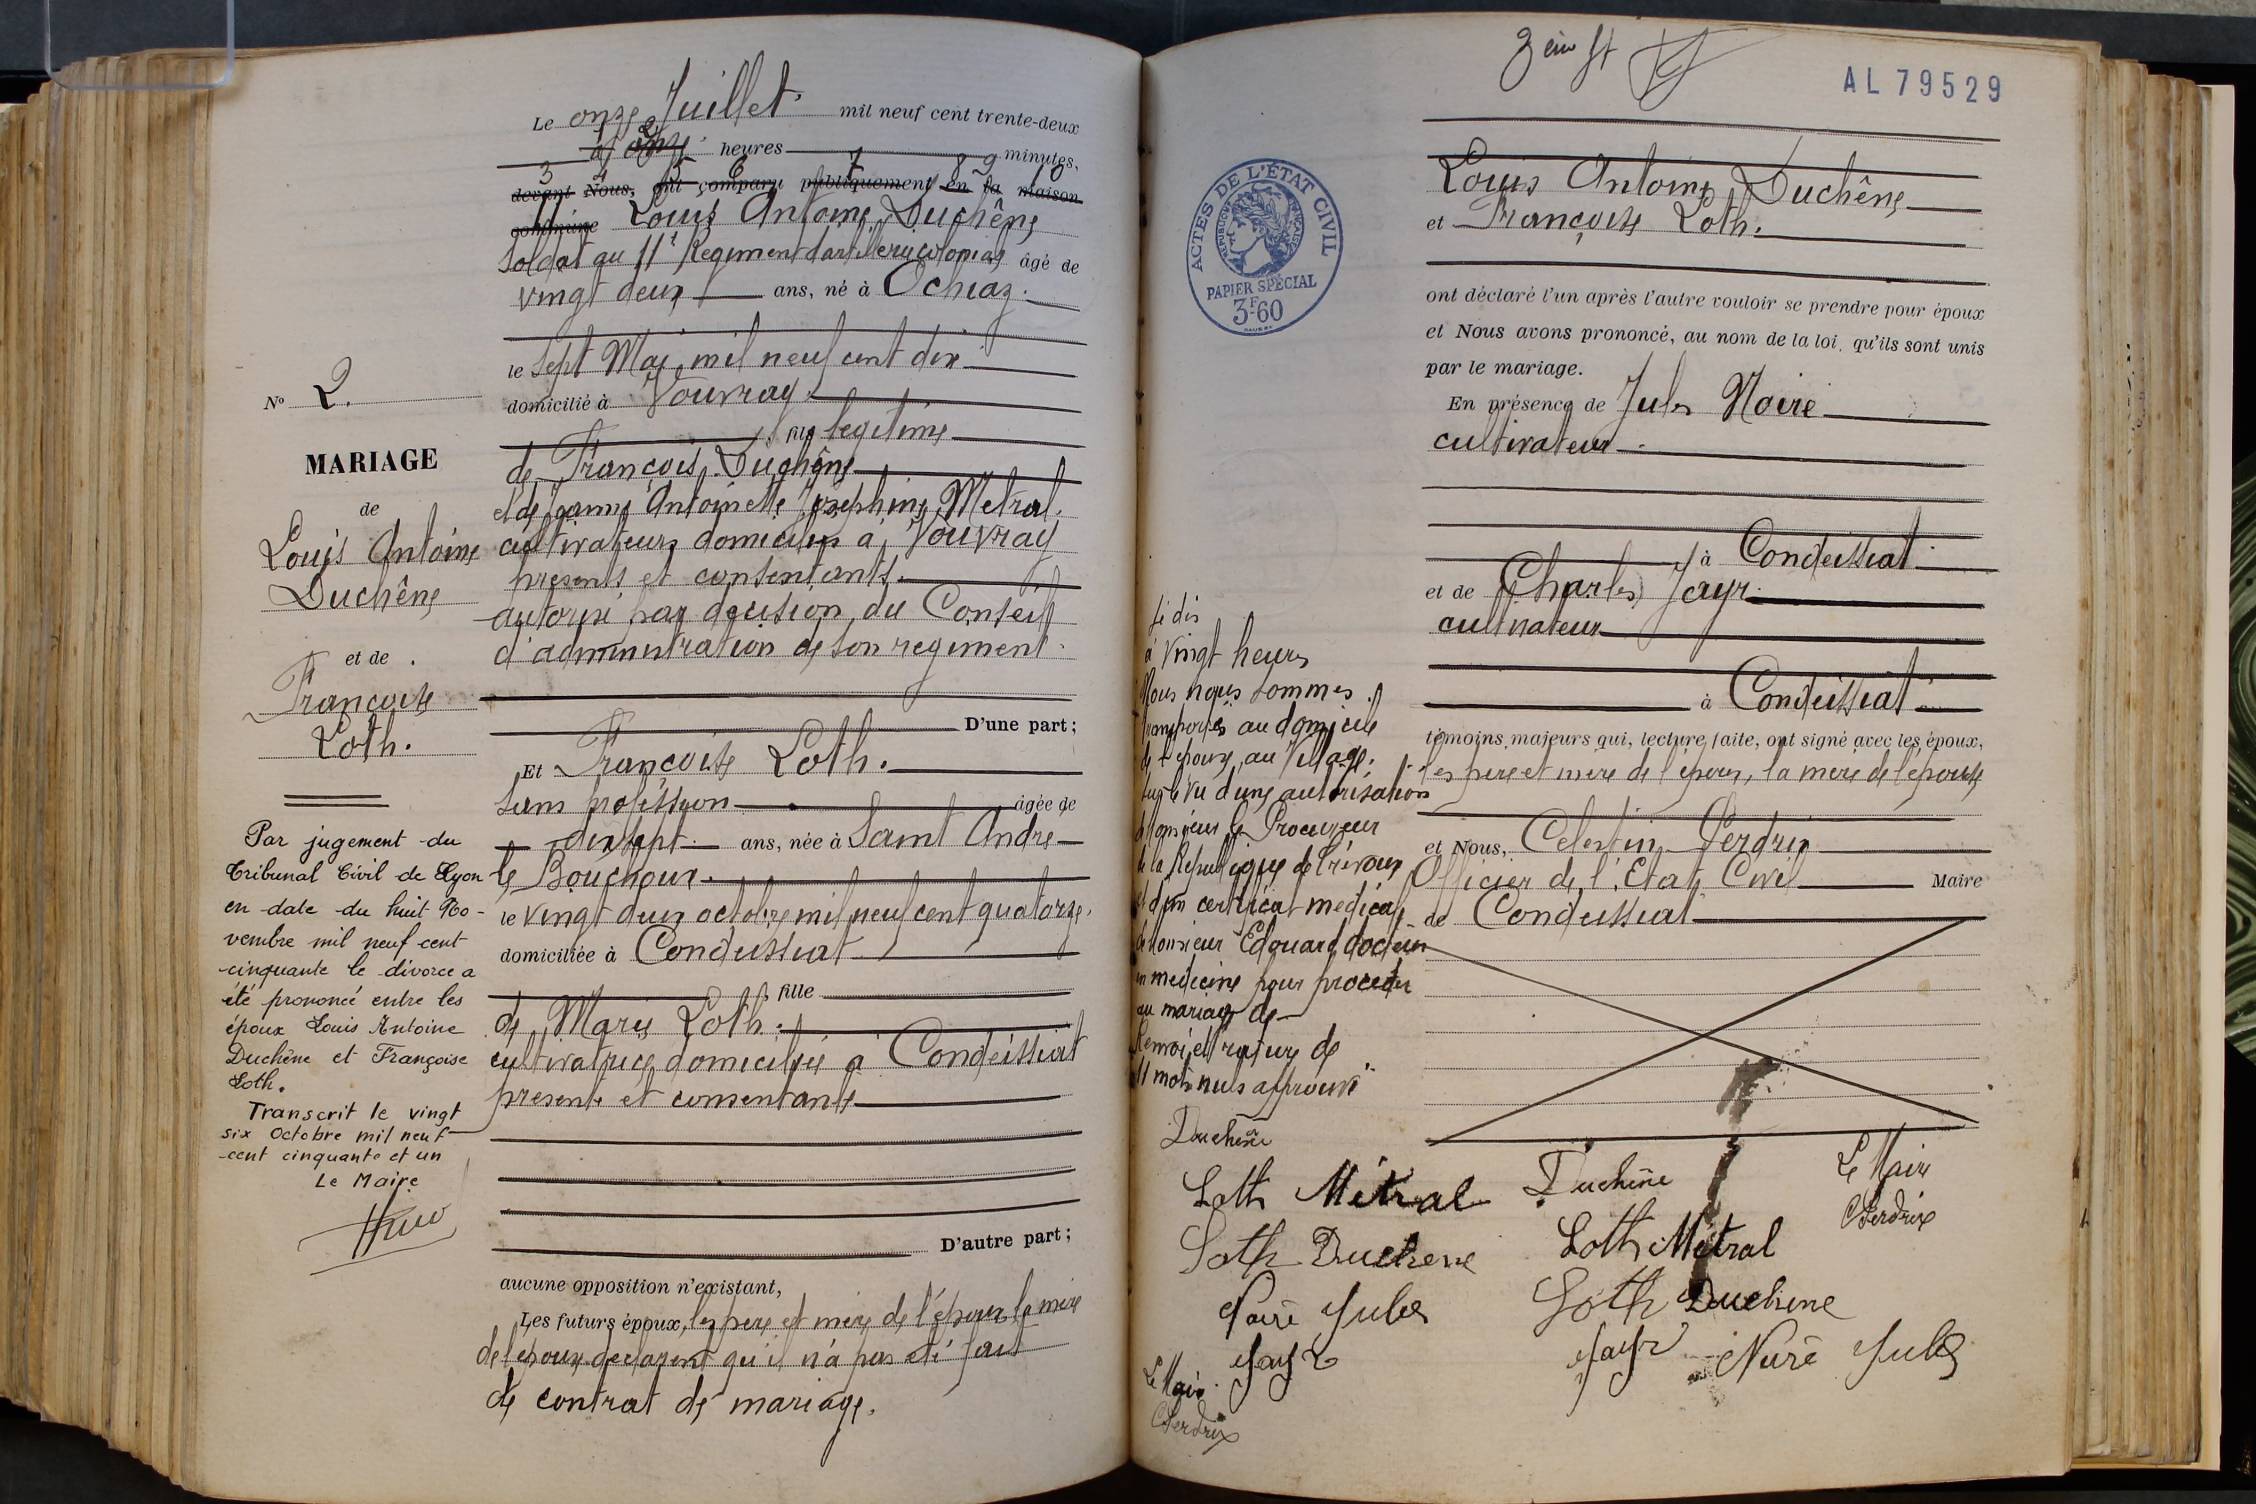 Le onze Juillet mil neuf cent trente-deux
à onze heures minutes,
3 4 5 6 7 8 9 10
devant Nous, ont comparu publiquement en la maison
commune Louis Antoine Duchêne
soldat au 11e Regiment d'artillerie coloniale âgé de
vingt deux ans, né à Ochiaz.
le sept Mai mil neuf cent dix
domicilié à Vouvray
, fils legitime
de François Duchêne
et de Jeanne Antoinette Josephine Metral.
cultivateurs domiciliés à Vouvray
présents et consentants.
autorisé par décision du Conseil
d'administration de son regiment.
D'une part;
Et Françoise Loth.
sans profession âgée de
dix sept ans, née à Saint André
le Bouchoux.
le vingt deux octobre mil neuf cent quatorze.
domiciliée à Condeissiat
, fille
de Marie Loth.
cultivatrice domiciliée à Condeissiat
presente et consentante
D'autre part;
aucune opposition n'existant,
Les futurs époux, les pere et mère de l'époux la mère
de l'épouse declarent qu'il n'a pas été fait
de contrat de mariage.
No 2.
MARIAGE
de
Louis Antoine
Duchêne
et de
Françoise
Loth.
Par jugement du
Tribunal Civil de Lyon
en date du huit No-
vembre mil neuf cent
cinquante le divorce a
été prononcé entre les
époux Louis Antoine
Duchêne et Françoise
Loth.
Transcrit le vingt
six Octobre mil neuf
cent cinquante et un
Le Maire
AL 79529
ACTES DE L'ÉTAT CIVIL
RÉPUBLIQUE FRANÇAISE
PAPIER SPÉCIAL
3F60
Louis Antoine Duchêne
et Françoise Loth.
ont déclaré l'un après l'autre vouloir se prendre pour époux
et Nous avons prononcé, au nom de la loi, qu'ils sont unis
par le mariage.
En présence de Jules Noire
cultivateur
à Condeissiat
et de Charles Jayr
cultivateur
à Condeissiat
témoins majeurs qui, lecture faite, ont signé avec les époux,
les pere et mere de l'époux, la mere de l'épouse
et Nous, Celestin Perdrix
Officier de l'Etat Civil Maire
de Condeissiat
à vingt heures
Nous nous sommes
transportés au domicile
de l'épouse, au Village.
sur le vu d'une autorisation
de Monsieur le Procureur
de la République de Trévoux
et d'un certificat medical
de Monsieur Edouard docteur
en medecine pour proceder
au mariage de
Renvoi et rature de
11 mots nuls approuvé
Duchêne
Loth Métral
Loth Duchene
Noire Jules
Jayr
Le Maire
CPerdrix
Duchêne
Le Maire
CPerdrix
Loth Métral
Loth Duchene
Jayr Noire Jules